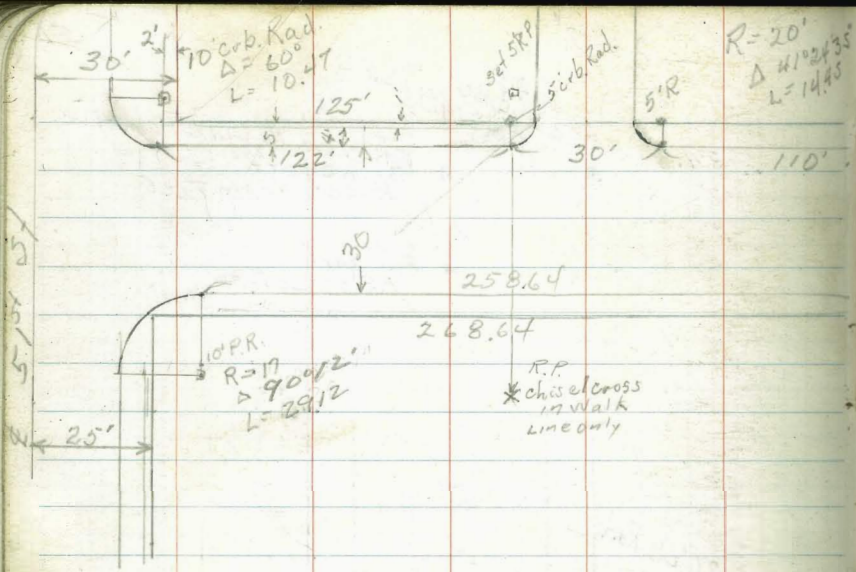 30'
2'
10' crb. Rad.
Δ = 60°
L = 10.47
125'
5
122'
Set 5' RP
5' crb. Rad.
5' R
R = 20'
Δ 41°24'35"
L = 14.45
30'
110'
30
258.64
268.64
10' P.R.
R = 17
Δ 90°12'
L = 29.12
R.P.
chisel cross
in walk
Line only
25'